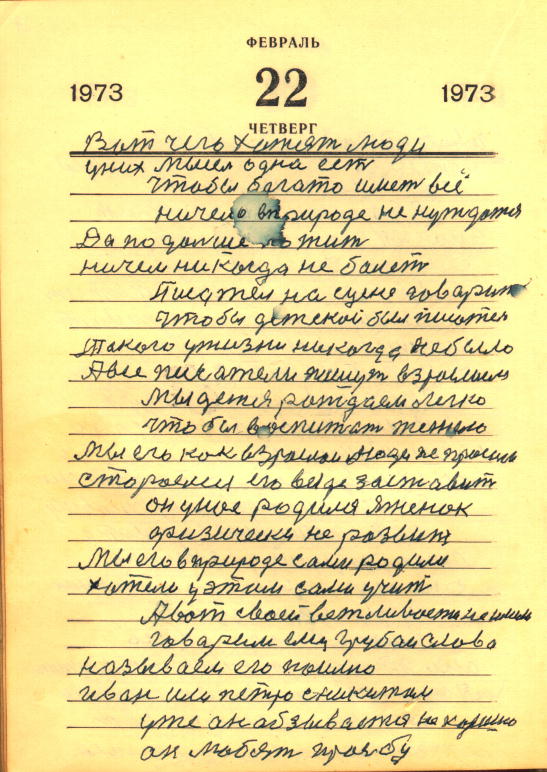 ФЕВРАЛЬ
1973 22 1973
ЧЕТВЕРГ
Вот чего хотят люди
уних мысл одна ест
чтобы богато имет всё
ничего вприроде не нуждатся
Да подолше пожит
ничем никогда не болет
Писател на сцене говарит
чтобы детской был писател
Такого ужизни никогда небыло
Авсе писатели пишут взрослым
Мы детя рождаем легко
чтобы воспитат тежело
Мы его как взрослои люди не просим
стораемся его везде заставит
он у нас родился
физически не развит
Мы его вприроде сами родили
хотели уэтим сами учит
Авот своей ветливости не имеем
говарим ему грубаи слова
называем его помино
иван или петро сникитам
уже он абзывается не хорошо
он любят прозбу